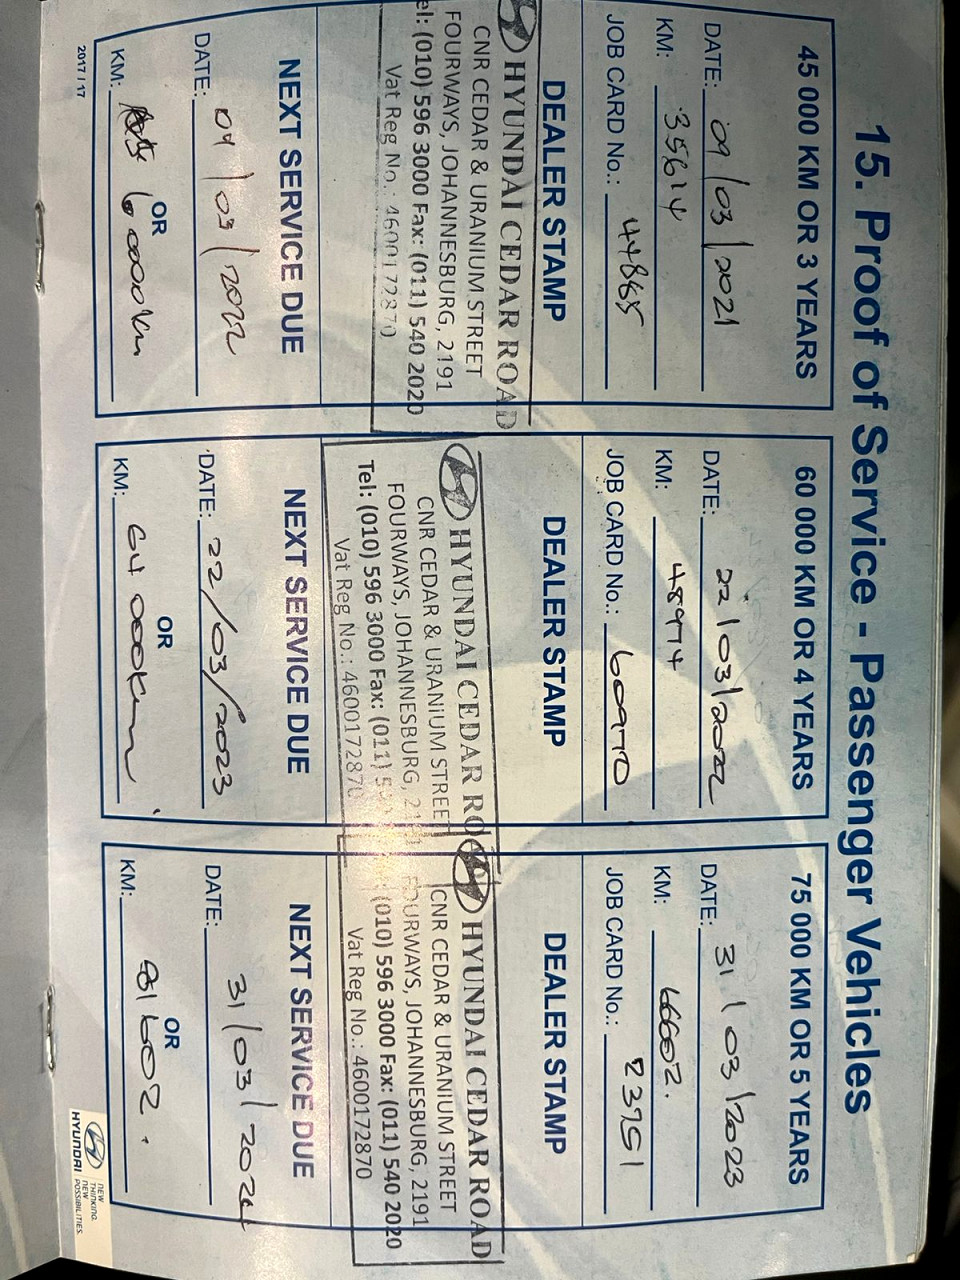 15. Proof of Service - Passenger Vehicles
45 000 KM OR 3 YEARS
DATE: 09/03/2021
KM: 35614
JOB CARD No.: 44885
DEALER STAMP
HYUNDAI CEDAR ROAD
CNR CEDAR & URANIUM STREET
FOURWAYS, JOHANNESBURG, 2191
el: (010) 596 3000 Fax: (011) 540 2020
Vat Reg No.: 4600172870
NEXT SERVICE DUE
DATE: 09/03/2022
OR
KM: 60000km
60 000 KM OR 4 YEARS
DATE: 22/03/2022
KM: 48974
JOB CARD No.: 60970
DEALER STAMP
HYUNDAI CEDAR RO
CNR CEDAR & URANIUM STREE
FOURWAYS, JOHANNESBURG, 21
Tel: (010) 596 3000 Fax: (011) 5
Vat Reg No.: 4600172870
NEXT SERVICE DUE
DATE: 22/03/2023
OR
KM: 64 000Km
75 000 KM OR 5 YEARS
DATE: 31/03/2023
KM: 66602.
JOB CARD No.: 73951
DEALER STAMP
HYUNDAI CEDAR ROAD
CNR CEDAR & URANIUM STREET
FOURWAYS, JOHANNESBURG, 2191
(010) 596 3000 Fax: (011) 540 2020
Vat Reg No.: 4600172870
NEXT SERVICE DUE
DATE: 31/03/2024
OR
KM: 81602.
2017 / 17
HYUNDAI
NEW THINKING.
NEW POSSIBILITIES.